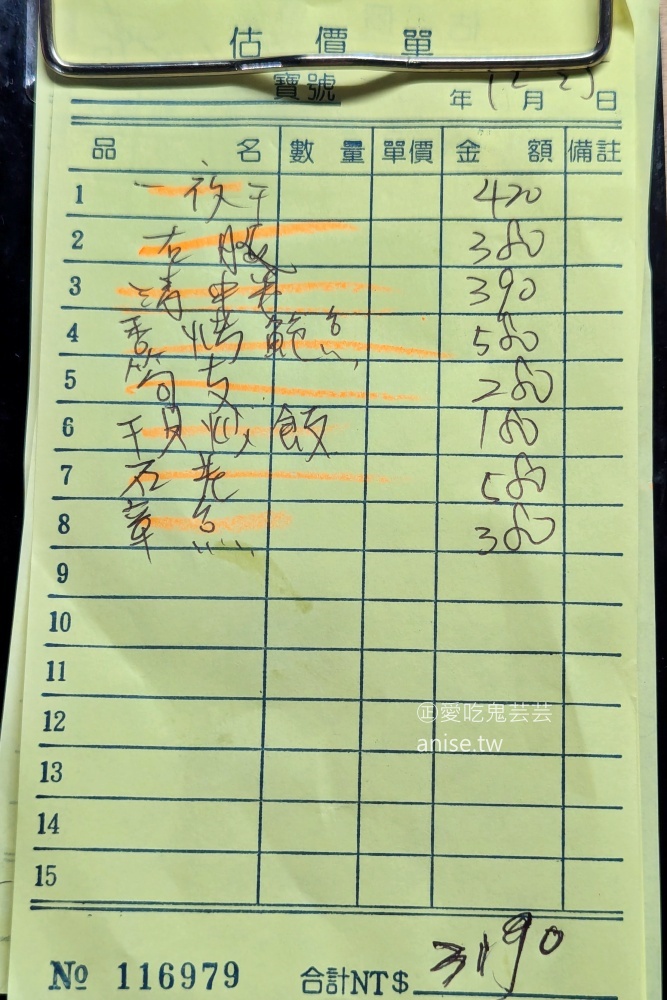 估價單
寶號 年12月25日
品名 數量 單價 金額 備註
1 一夜干 420
2 380
3 390
4 香烤 魚 580
5 280
6 干貝炒飯 180
7 石老 580
8 章魚 380
9
10
11
12
13
14
15
㊣愛吃鬼芸芸
anise.tw
№ 116979 合計NT$ 3190